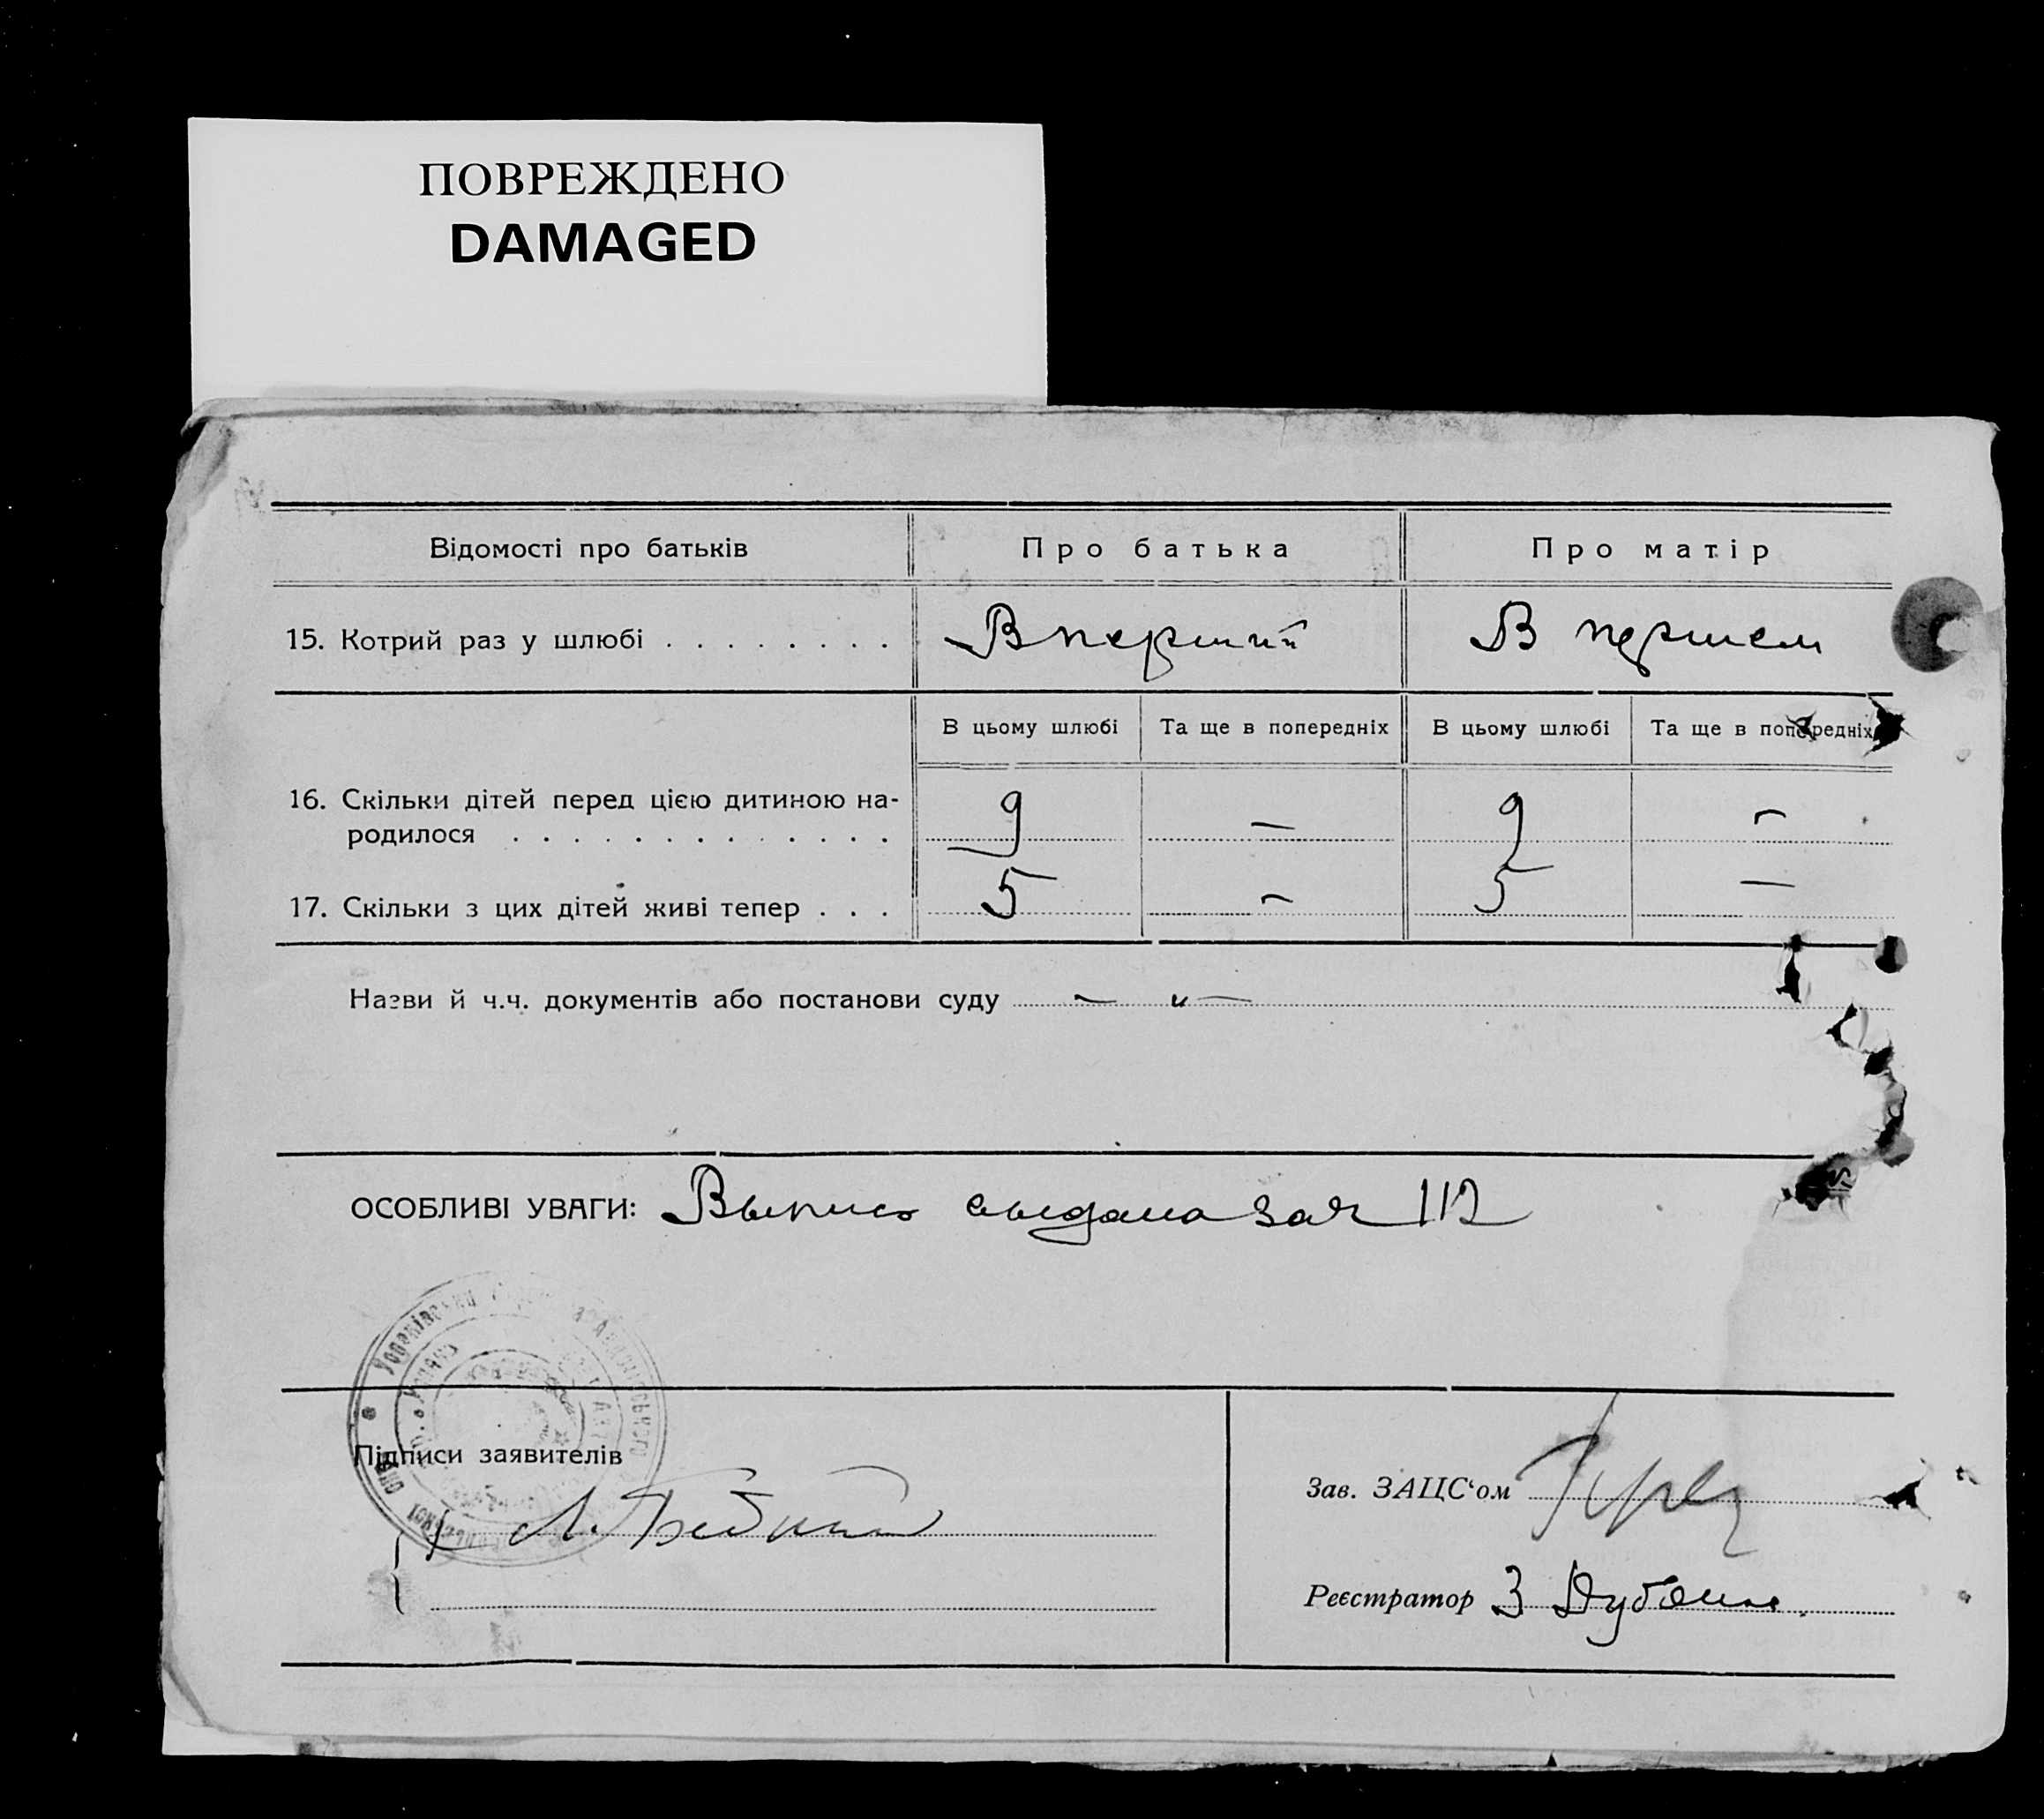 ПОВРЕЖДЕНО
DAMAGED
Відомості про батьків
Про батька
Про матір
15. Котрий раз у шлюбі . . . . . . . .
В перший
В першем
В цьому шлюбі
Та ще в попередніх
В цьому шлюбі
Та ще в попередніх
16. Скільки дітей перед цією дитиною на-
родилося . . . . . . . . . . . . .
9 — 9 —
17. Скільки з цих дітей живі тепер . . .
5 — 5 —
Назви й ч.ч. документів або постанови суду — " —
ОСОБЛИВІ УВАГИ: Выпись выдана за № 112
Підписи заявителів
Зав. ЗАЦС‘ом
Реєстратор З